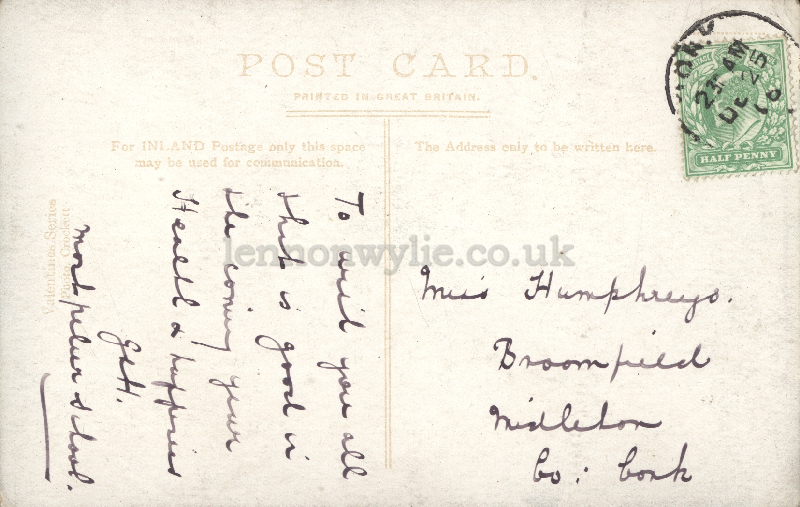 POST CARD.
PRINTED IN GREAT BRITAIN.
For INLAND Postage only this space
may be used for communication.
The Address only to be written here.
HALF PENNY
23 AM
DE 25
lennonwylie.co.uk
To wish you all
that is good in
the coming year
Health & happiness
Montpelier School.
Valentines Series
Miss Humphreys.
Broomfield
Midleton
Co: Cork